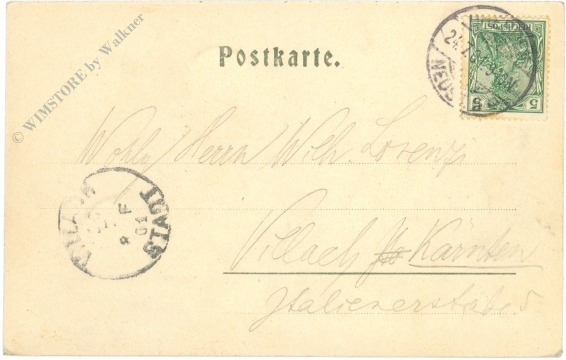 © WIMSTORE by Walkner
Postkarte.
Wohlg Herrn Wilh. Lorenz
Villach Kärnten
Italienerstraße 5
VILLACH STADT
5